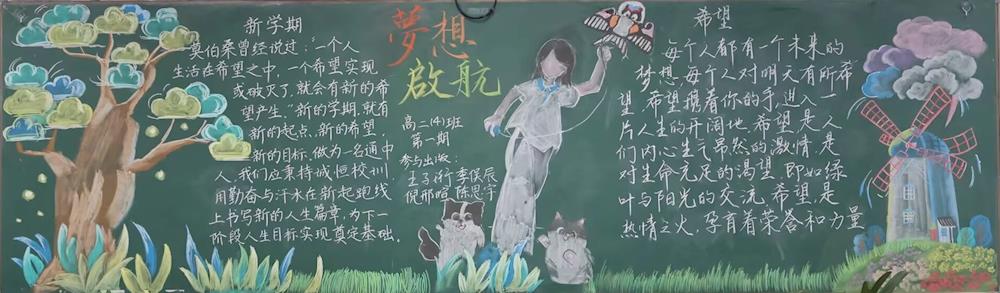 新学期
莫伯桑曾经说过:“一个人
生活在希望之中,一个希望实现
或破灭了,就会有新的希
望产生”新的学期,就有
新的起点,新的希望,
新的目标,做为一名通中
人,我们应秉持诚恒校训
用勤奋与汗水在新起跑线
上书写新的人生篇章,为下一
阶段人生目标实现奠定基础。
夢想
啟航
高二(4)班
第一期
参与出版:
李俣辰
倪邢暄 陈思宇
希望
每个人都有一个未来的
梦想,每个人对明天有所希
望,希望携着你的手,进入一
片人生的开阔地,希望是人
们内心生气昂然的激情,是
对生命充足的渴望,即如绿
叶与阳光的交流,希望是
热情之火,孕育着荣誉和力量